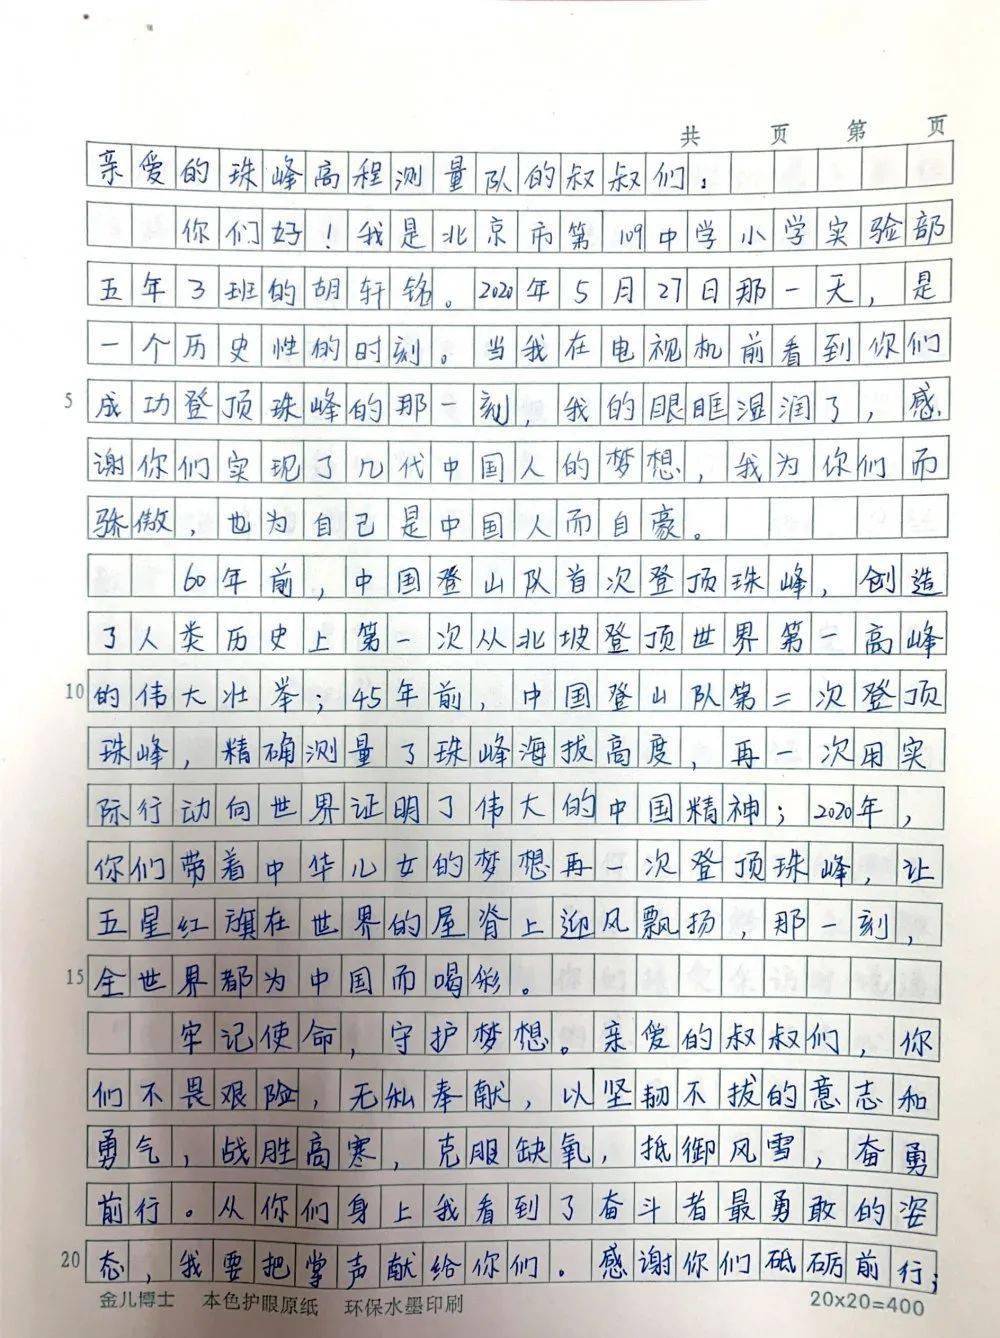 共 页 第 页
亲爱的珠峰高程测量队的叔叔们：
你们好！我是北京市第109中学小学实验部
五年3班的胡轩铭。2020年5月27日那一天，是
一个历史性的时刻。当我在电视机前看到你们
5 成功登顶珠峰的那一刻，我的眼眶湿润了，感
谢你们实现了几代中国人的梦想，我为你们而
骄傲，也为自己是中国人而自豪。
60年前，中国登山队首次登顶珠峰，创造
了人类历史上第一次从北坡登顶世界第一高峰
10 的伟大壮举；45年前，中国登山队第二次登顶
珠峰，精确测量了珠峰海拔高度，再一次用实
际行动向世界证明了伟大的中国精神；2020年，
你们带着中华儿女的梦想再一次登顶珠峰，让
五星红旗在世界的屋脊上迎风飘扬，那一刻，
15 全世界都为中国而喝彩。
牢记使命，守护梦想。亲爱的叔叔们，你
们不畏艰险，无私奉献，以坚韧不拔的意志和
勇气，战胜高寒，克服缺氧，抵御风雪，奋勇
前行。从你们身上我看到了奋斗者最勇敢的姿
20 态，我要把掌声献给你们。感谢你们砥砺前行；
金儿博士 本色护眼原纸 环保水墨印刷 20x20=400